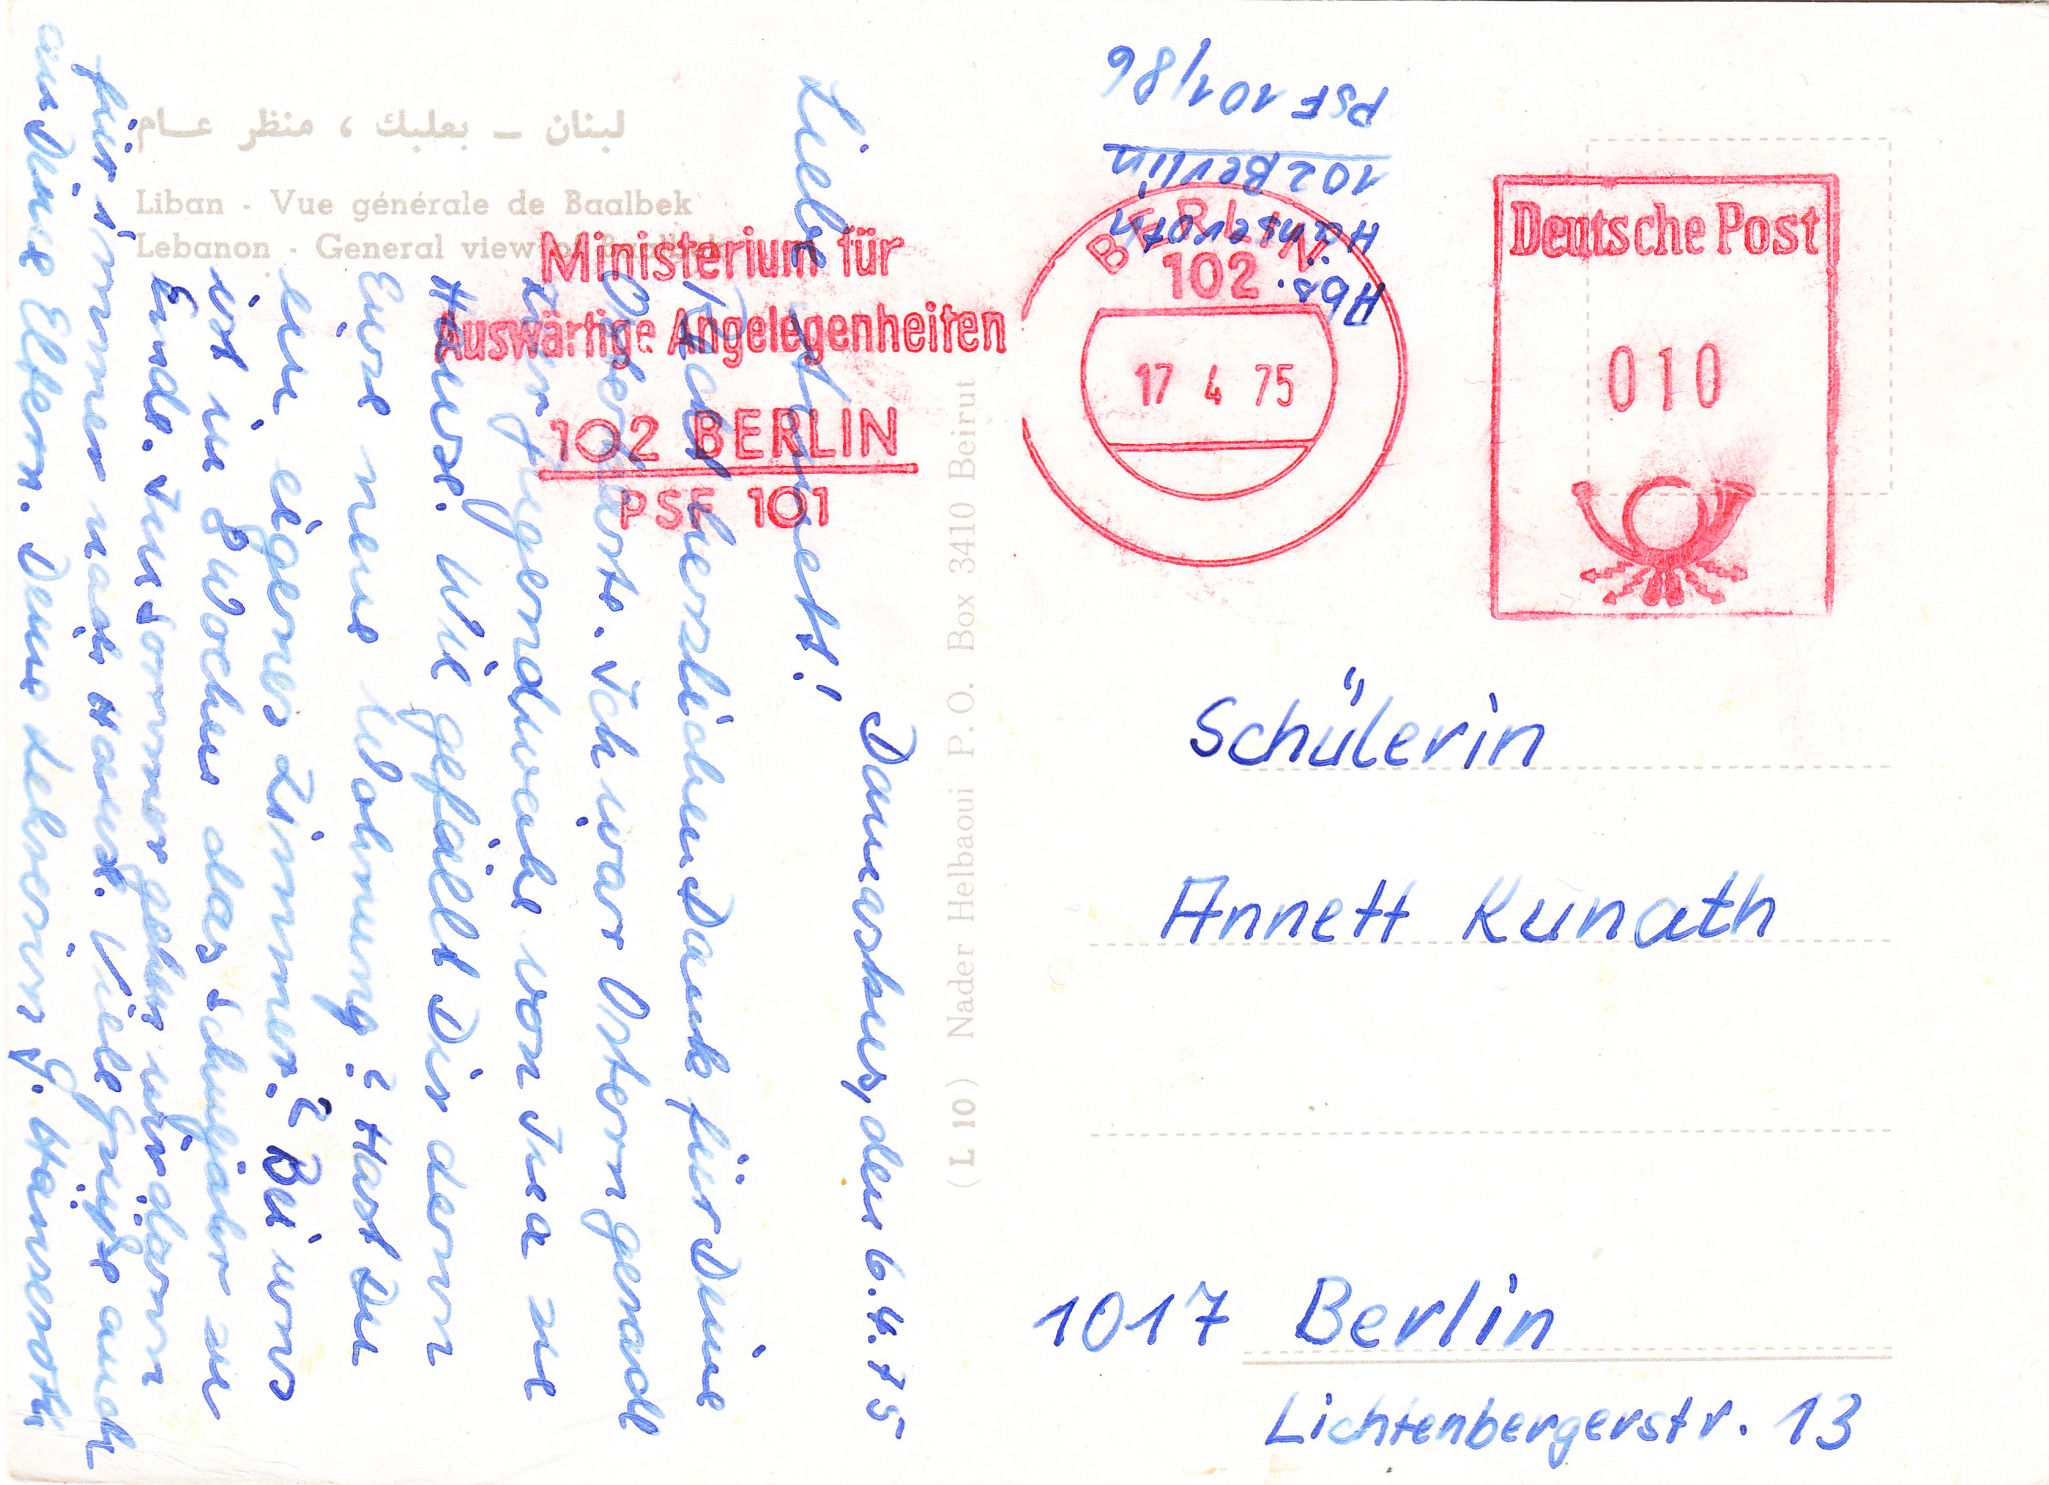 لبنان – بعلبك ، منظر عام
Liban - Vue générale de Baalbek
Lebanon - General view of Baalbek
(L 10) Nader Helbaoui P.O. Box 3410 Beirut
Ministerium für
Auswärtige Angelegenheiten
102 BERLIN
PSF 101
BERLIN
102
17 4 75
Deutsche Post
010
Abs.
Hänseroth
102 Berlin
PSF 101/86
Damaskus, den 6.4.75
Liebe Annett!
Recht herzlichen Dank für Deine
Osterkarte. Ich war Ostern gerade
zur Jugendweihe von Ina zu
Hause. Wie gefällt Dir denn
Eure neue Wohnung? Hast Du
ein eigenes Zimmer? Bei uns
ist in 8 Wochen das Schuljahr zu
Ende. Im Sommer gehen wir dann
für immer nach Hause. Viele Grüße auch
an Deine Eltern. Deine Lehrerin G. Hänseroth
Schülerin
Annett Kunath
1017 Berlin
Lichtenbergerstr. 13